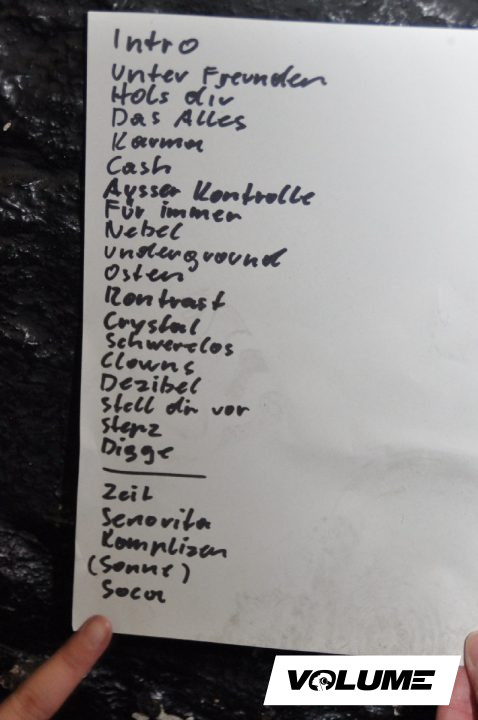 Intro
Unter Freunden
Hols dir
Das Alles
Karma
Cash
Ausser Kontrolle
Für immer
Nebel
underground
Osten
Kontrast
Crystal
Schwerelos
Clowns
Dezibel
stell dir vor
stepz
Digge
Zeit
Senorita
Komplizen
(Sonne)
Soca
VOLUME